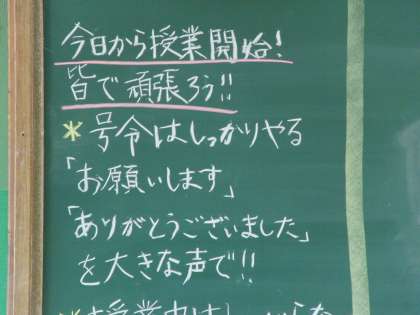 今日から授業開始!
皆で頑張ろう!!
*号令はしっかりやる
「お願いします」
「ありがとうございました」
を大きな声で!!
*授業中は